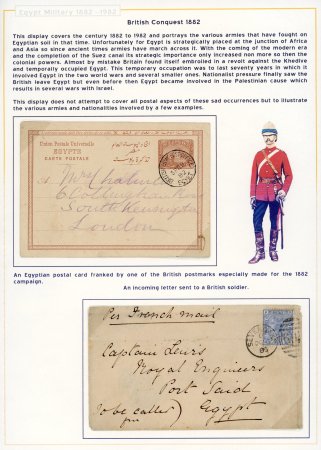 Egypt Military 1882 - 1982
British Conquest 1882
This display covers the century 1882 to 1982 and portrays the various armies that have fought on
Egyptian soil in that time. Unfortunately for Egypt is strategically placed at the junction of Africa
and Asia so since ancient times armies have march across it. With the coming of the modern era
and the completion of the Suez canal its strategic importance only increased non more so then the
colonial powers. Almost by mistake Britain found itself embroiled in a revolt against the Khedive
and temporally occupied Egypt. This temporary occupation was to last seventy years in which it
involved Egypt in the two world wars and several smaller ones. Nationalist pressure finally saw the
British leave Egypt but even before then Egypt became involved in the Palestinian cause which
results in several wars with Israel.
This display does not attempt to cover all postal aspects of these sad occurrences but to illustrate
the various armies and nationalities involved by a few examples.
Union Postale Universelle
EGYPTE
CARTE POSTALE
Mrs
South Kensington
London
An Egyptian postal card franked by one of the British postmarks especially made for the 1882
campaign.
An incoming letter sent to a British soldier.
Per French mail
Captain Lewis
Royal Engineers
Port Said
(to be called for) Egypt